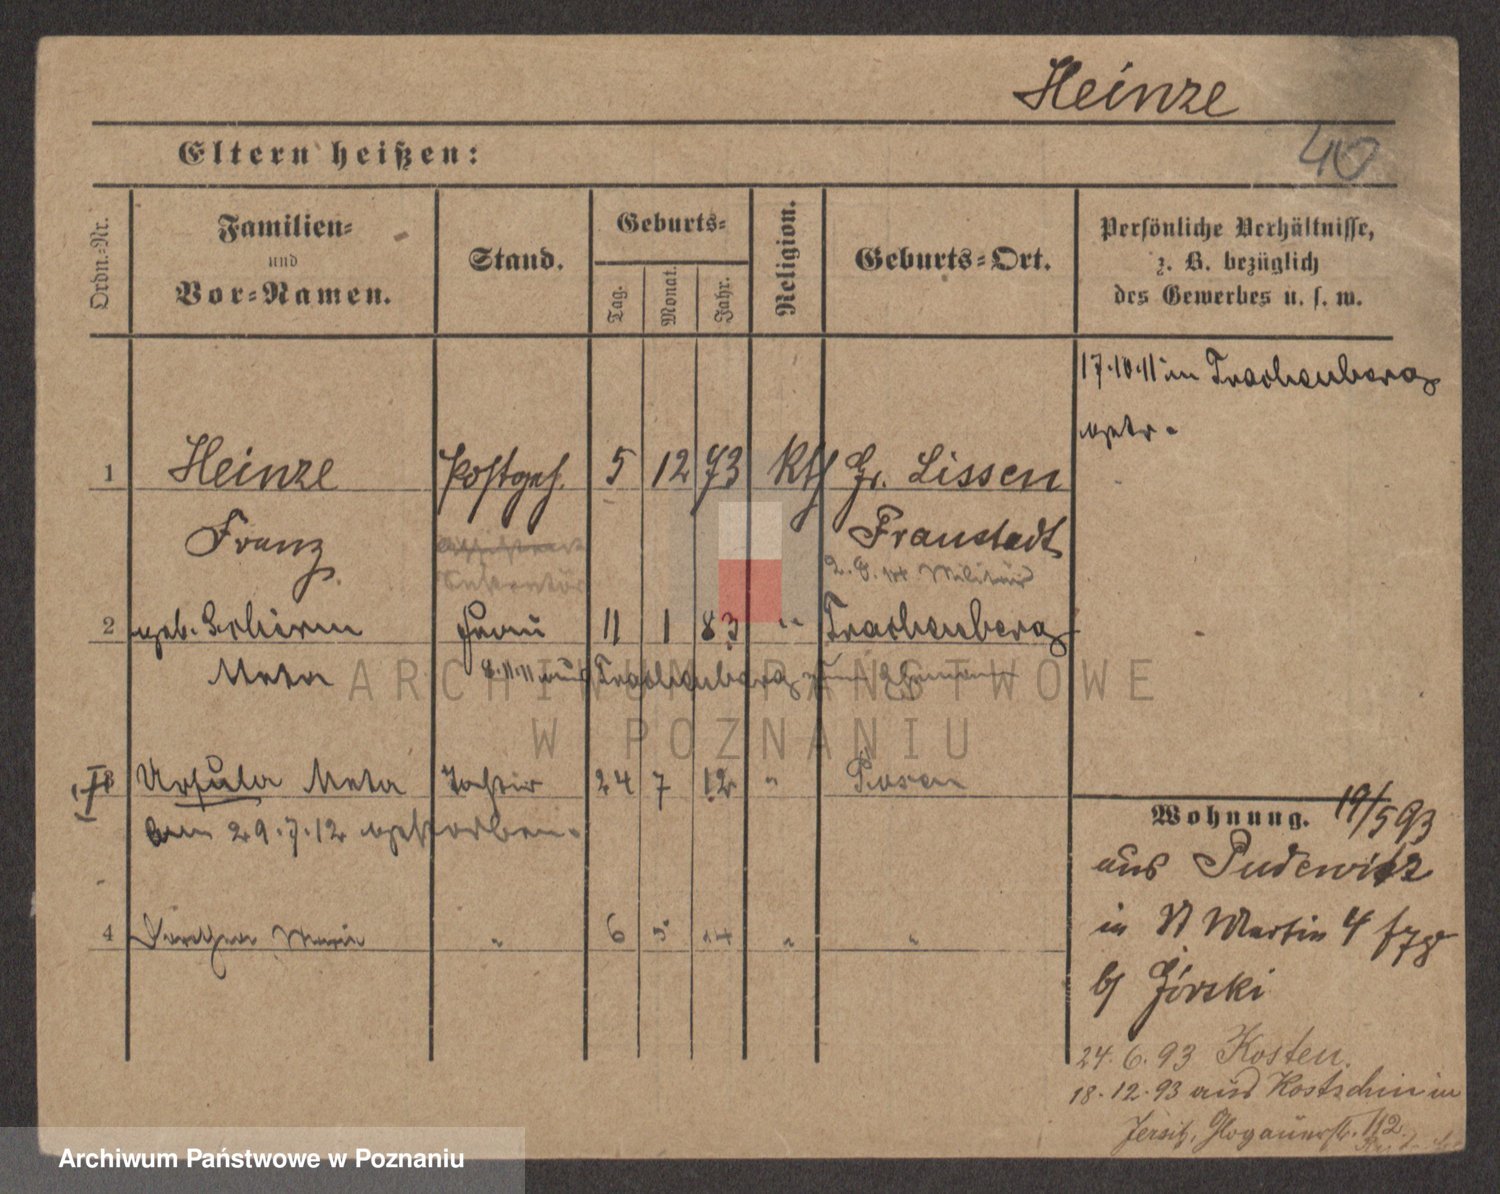 Heinze
40
Eltern heißen:
Ordn.-Nr.
Familien-
und
Vor-Namen.
Stand.
Geburts-
Tag.
Monat.
Jahr.
Religion.
Geburts-Ort.
Persönliche Verhältnisse,
z. B. bezüglich
des Gewerbes u. s. w.
17.10.11 in Trachenberg
getr.
1 Heinze Postgeh. 5 12 73 Kth Gr. Lissen
Franz Fraustadt
2. 8. 14 Militär
2 geb. Schirm Frau 11 1 83 " Trachenberg
Meta 8.11.11 aus Trachenberg
3 Ursula Meta Tochter 24 7 12 " Posen
am 29.7.12 gestorben.
4 Maria " 6 5 14 " "
Wohnung. 19/5 93
aus Pudewitz
in St Martin 4
b/ Górski
24.6.93 Kosten.
18.12.93 aus Kostschin in
Jersitz, Glogauerstr. 112.
ARCHIWUM PAŃSTWOWE
W POZNANIU
Archiwum Państwowe w Poznaniu